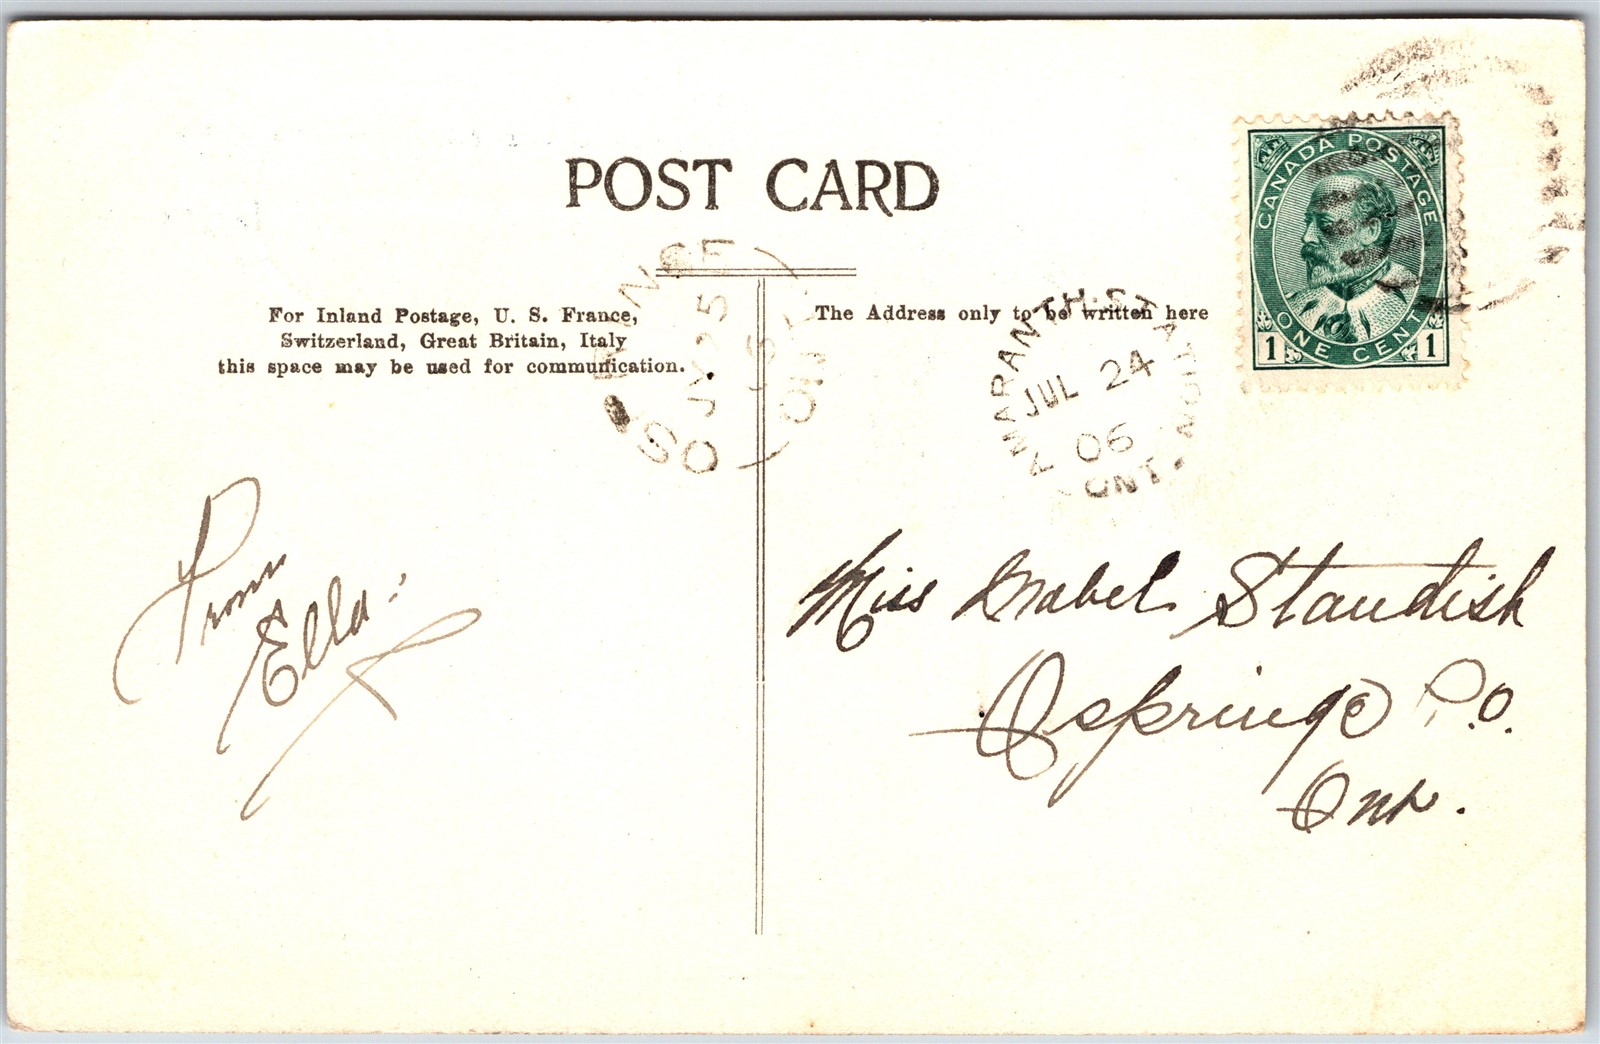 POST CARD
CANADA POSTAGE
ONE CENT
1 1
For Inland Postage, U. S. France,
Switzerland, Great Britain, Italy
this space may be used for communification.
The Address only to be written here
OSPRINGE
JY 25
06
ONT
AMARANTH·STATION
JUL 24
06
ONT.
From
Ella:
Miss Mabel Standish
Ospringe P.O.
Ont.